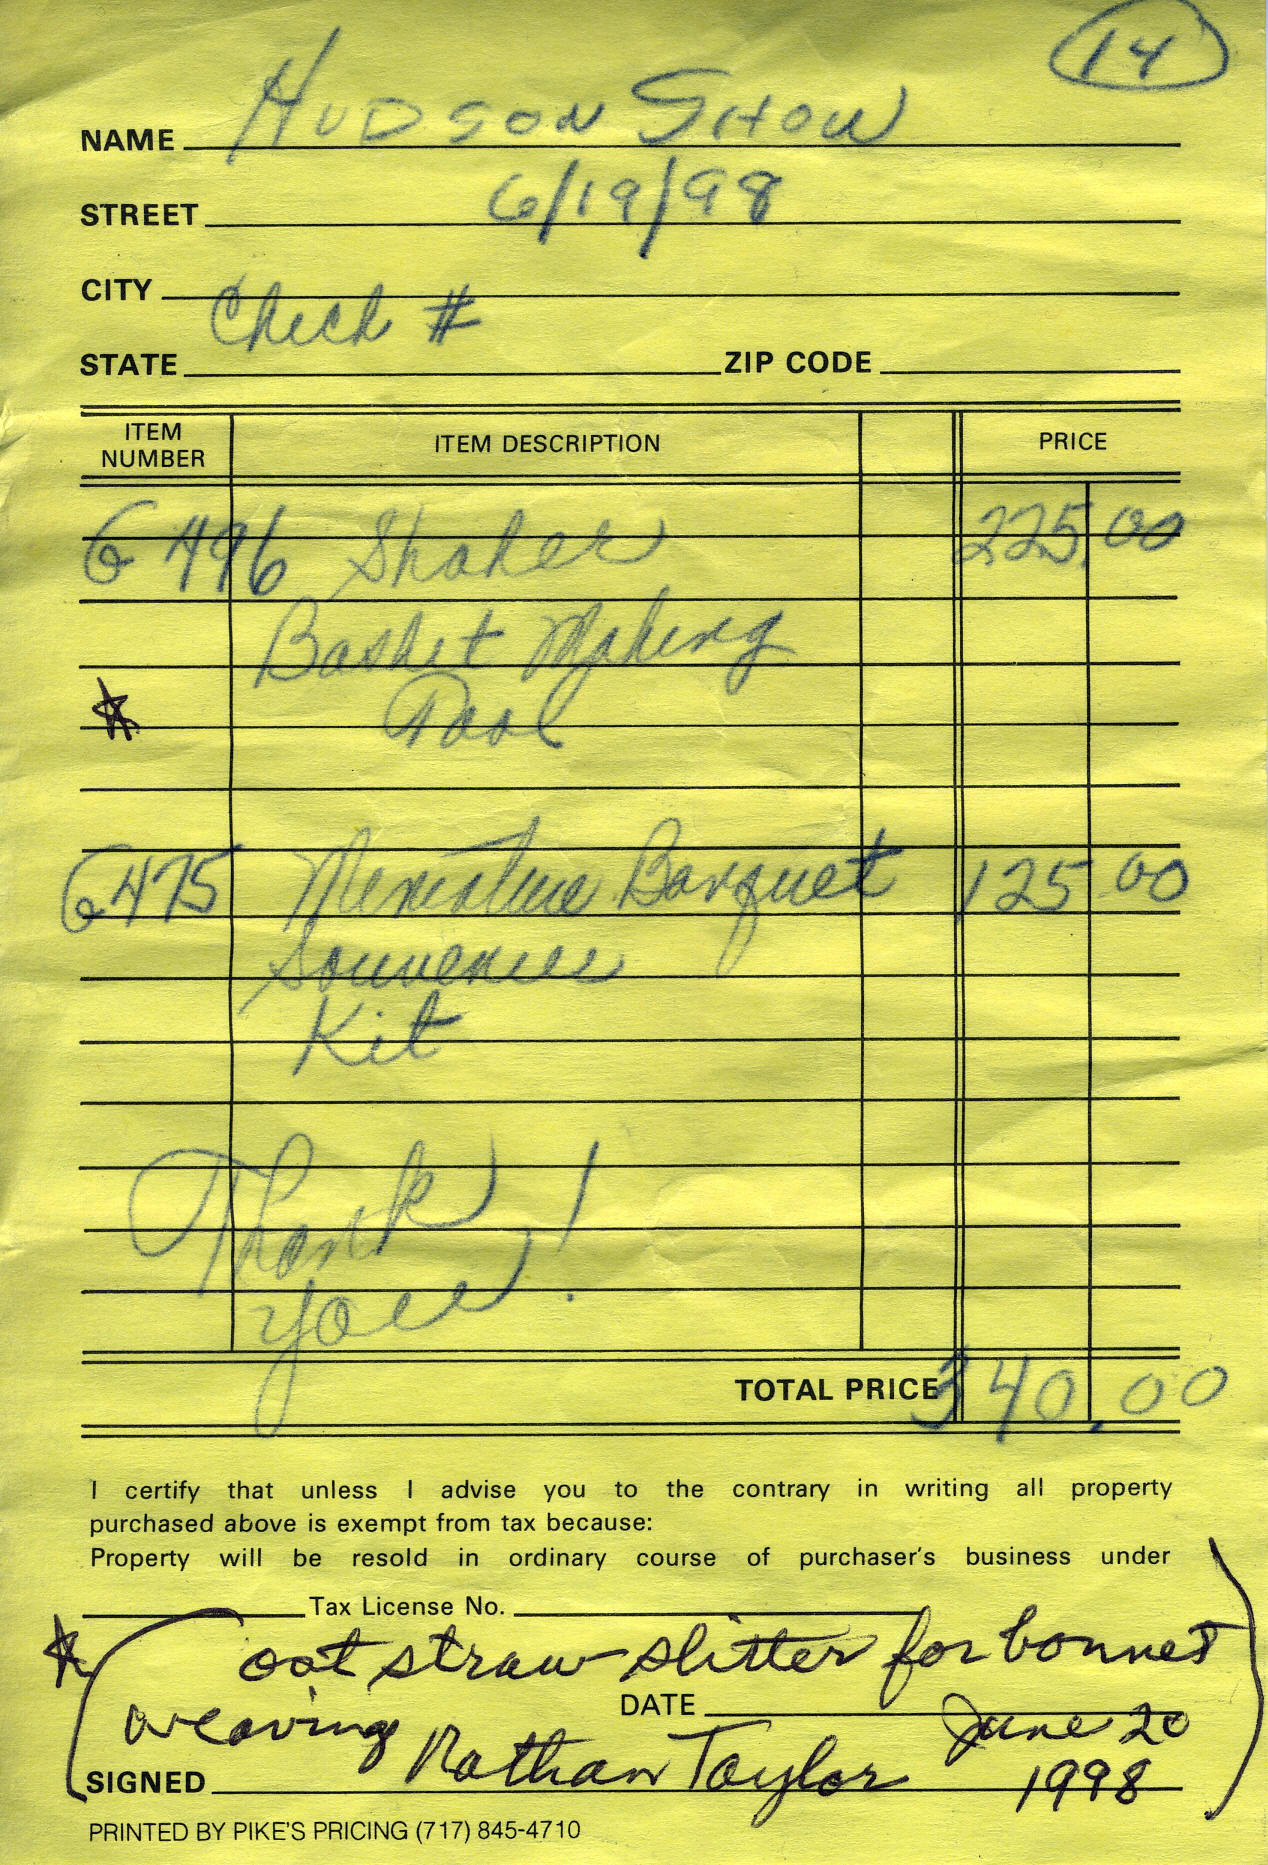 14
NAME HUDSON SHOW
STREET 6/19/98
CITY
Check #
STATE ZIP CODE
ITEM NUMBER ITEM DESCRIPTION PRICE
G 496 Shaker 225.00
Basket Making
Tool
G 475 Miniature Banquet 125 00
Souvenier
Kit
Thank
you!
TOTAL PRICE 340.00
I certify that unless I advise you to the contrary in writing all property
purchased above is exempt from tax because:
Property will be resold in ordinary course of purchaser's business under
Tax License No.
(oat straw slitter for bonnet
weaving DATE June 20
SIGNED Nathan Taylor 1998)
PRINTED BY PIKE'S PRICING (717) 845-4710